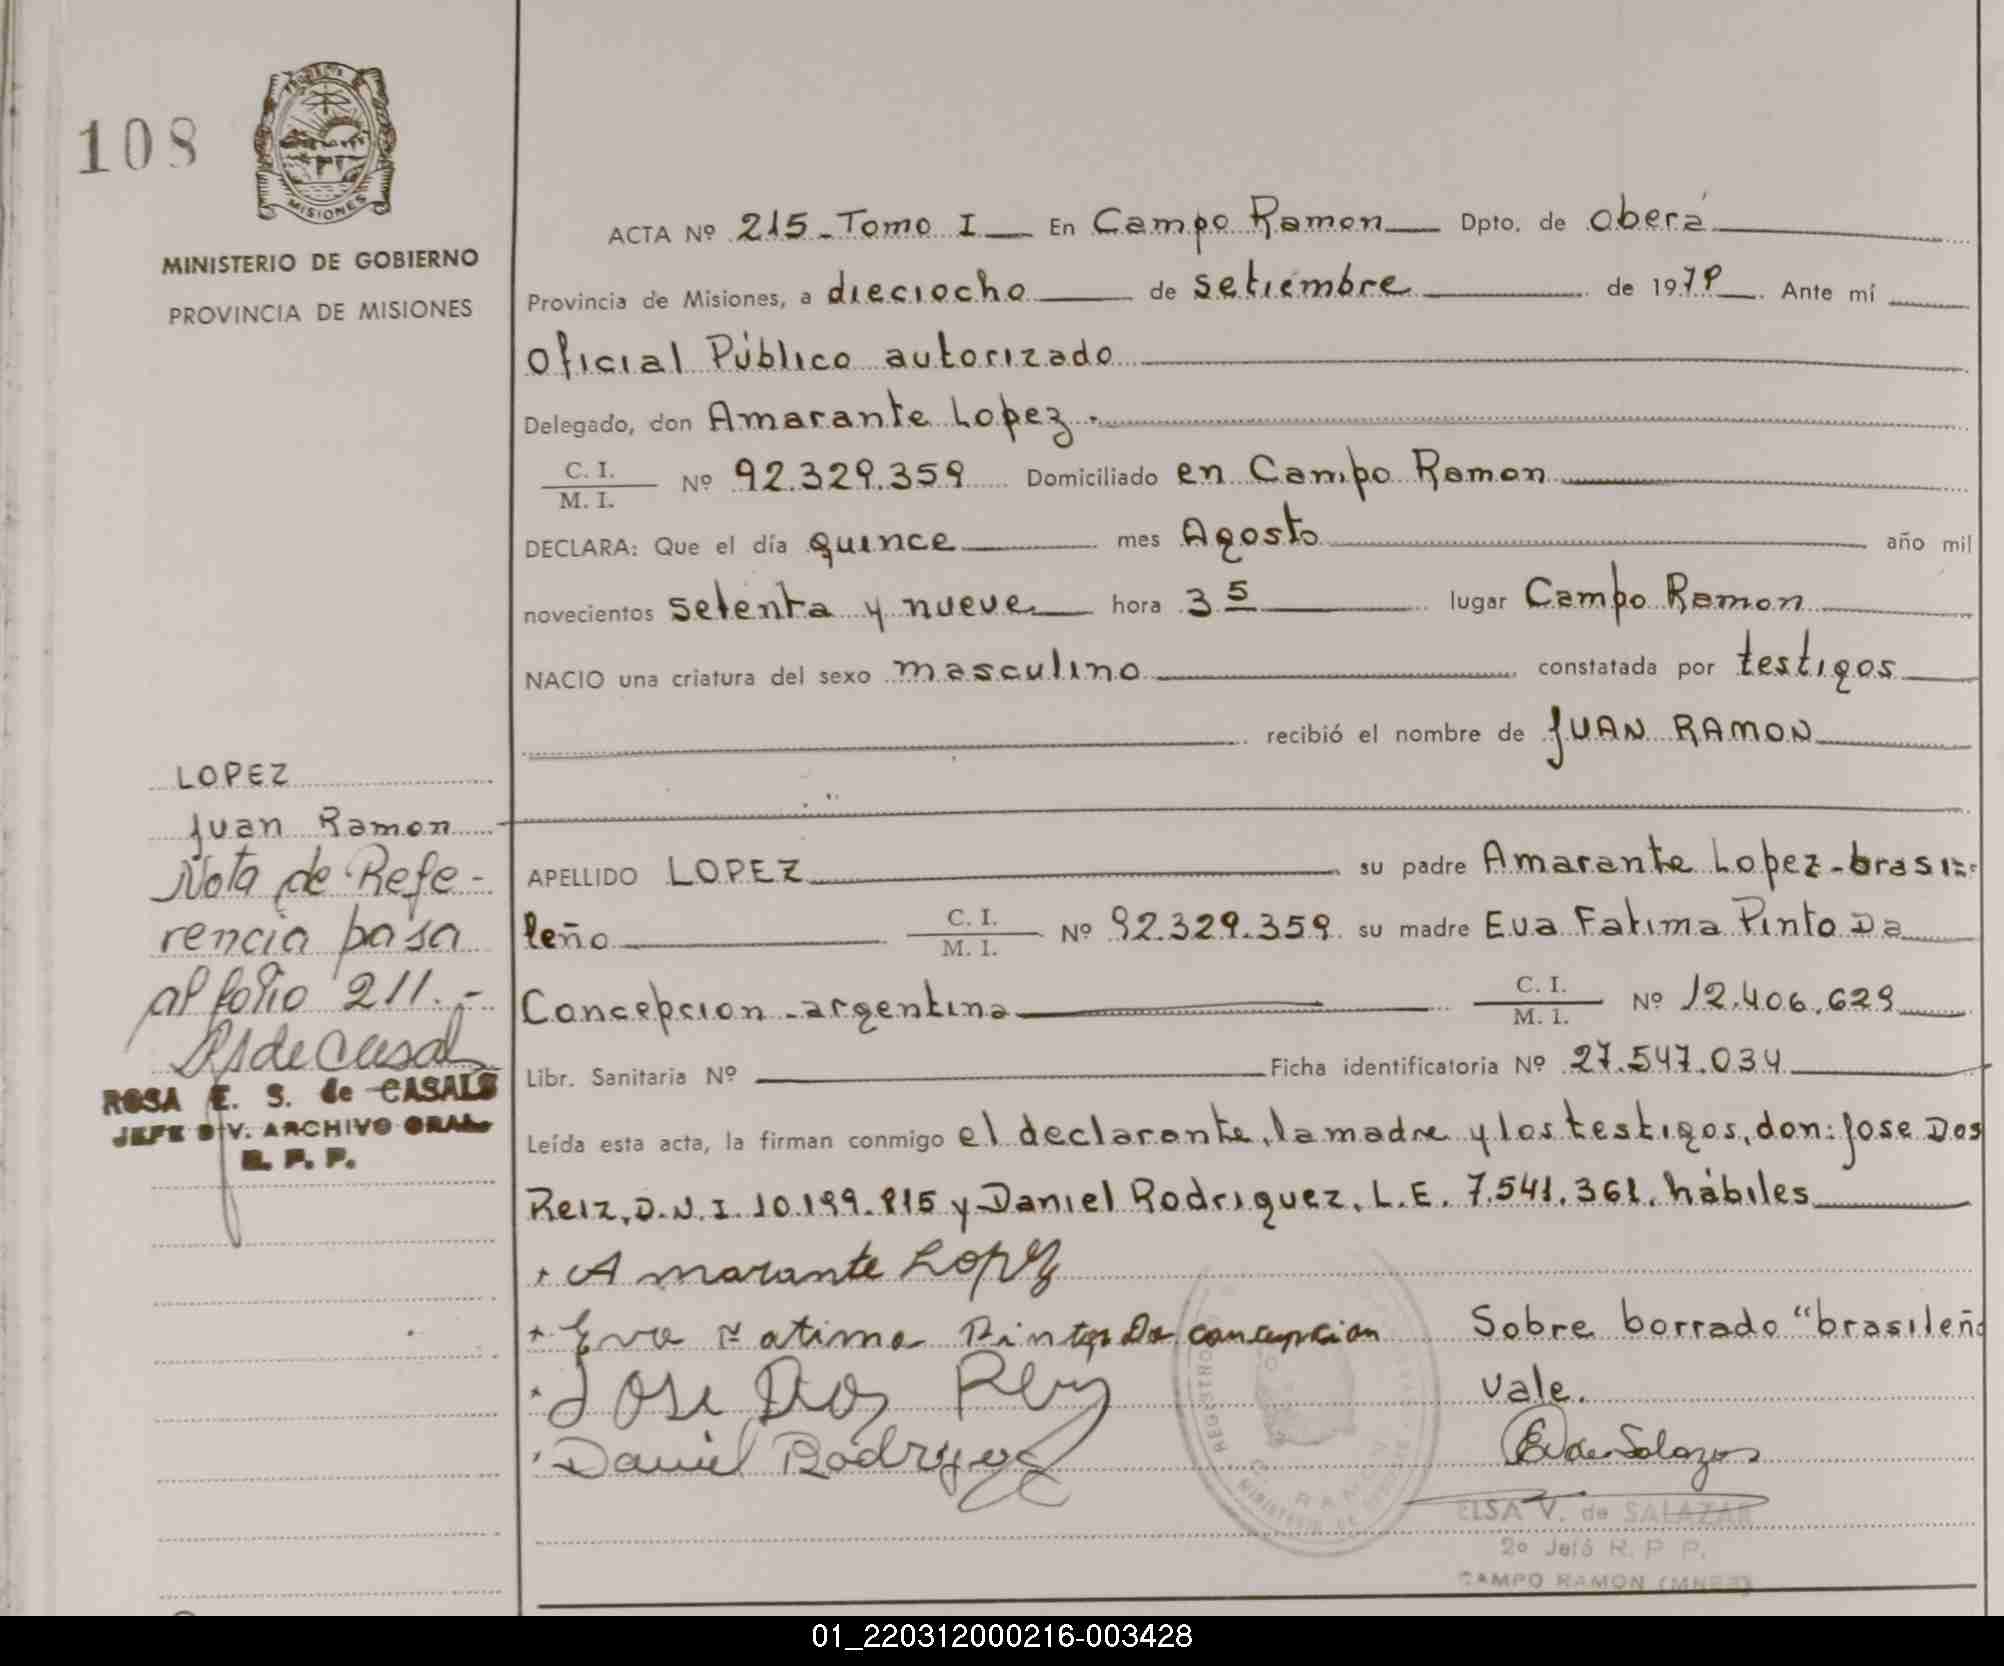 108
PROVINCIA DE
MISIONES
MINISTERIO DE GOBIERNO
PROVINCIA DE MISIONES
ACTA Nº 215 - Tomo I En Campo Ramon Dpto. de Oberá
Provincia de Misiones, a dieciocho de setiembre de 1979. Ante mí
Oficial Público autorizado
Delegado, don Amarante Lopez.
C. I.
M. I. Nº 92.329.359 Domiciliado en Campo Ramon
DECLARA: Que el día quince mes Agosto año mil
novecientos setenta y nueve hora 3 5 lugar Campo Ramon
NACIO una criatura del sexo masculino constatada por testigos
recibió el nombre de JUAN RAMON
LOPEZ
Juan Ramon
Nota de Refe-
rencia pasa
al folio 211.-
RSdeCasals
ROSA E. S. de CASALS
JEFE DIV. ARCHIVO GRAL
R. P. P.
APELLIDO LOPEZ su padre Amarante Lopez - brasi-
leño C. I.
M. I. Nº 92.329.359 su madre Eva Fatima Pinto Da
Concepcion - argentina C. I.
M. I. Nº 12.406.629
Libr. Sanitaria Nº Ficha identificatoria Nº 27.547.034
Leída esta acta, la firman conmigo el declarante, la madre y los testigos, don: Jose Dos
Reiz, D.N.I. 10.199.815 y Daniel Rodriguez, L.E. 7.541.361. hábiles
Amarante Lopez
Eva Fatima Pinto Da concepcion Sobre borrado "brasileño
Jose Dos Rey vale.
Daniel Rodriguez EVdeSalazar
ELSA V. de SALAZAR
2º Jefe R. P. P.
CAMPO RAMON (MNES)
01_220312000216-003428